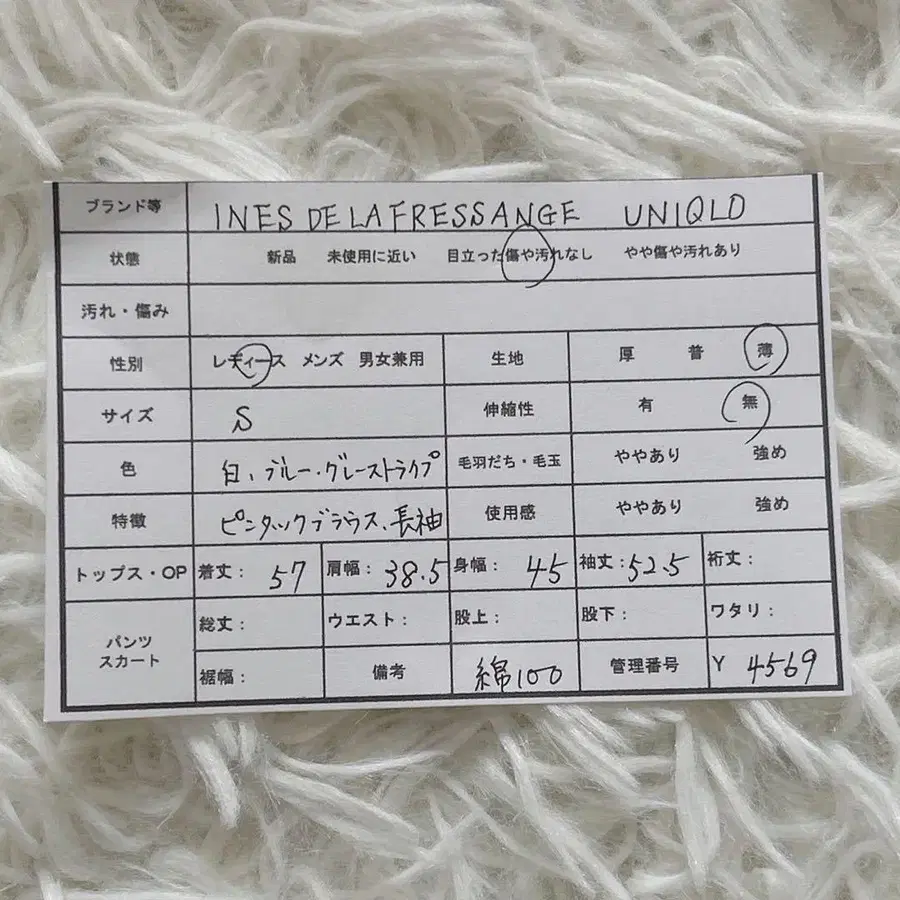 ブランド等 INES DE LA FRESSANGE UNIQLO
状態 新品 未使用に近い 目立った傷や汚れなし やや傷や汚れあり
汚れ・傷み
性別 レディース メンズ 男女兼用 生地 厚 普 薄
サイズ S 伸縮性 有 無
色 白、ブルー・グレーストライプ 毛羽だち・毛玉 ややあり 強め
特徴 ピンタックブラウス、長袖 使用感 ややあり 強め
トップス・OP 着丈: 57 肩幅: 38.5 身幅: 45 袖丈: 52.5 裄丈:
パンツ スカート 総丈: ウエスト: 股上: 股下: ワタリ:
裾幅: 備考 綿100 管理番号 Y 4569